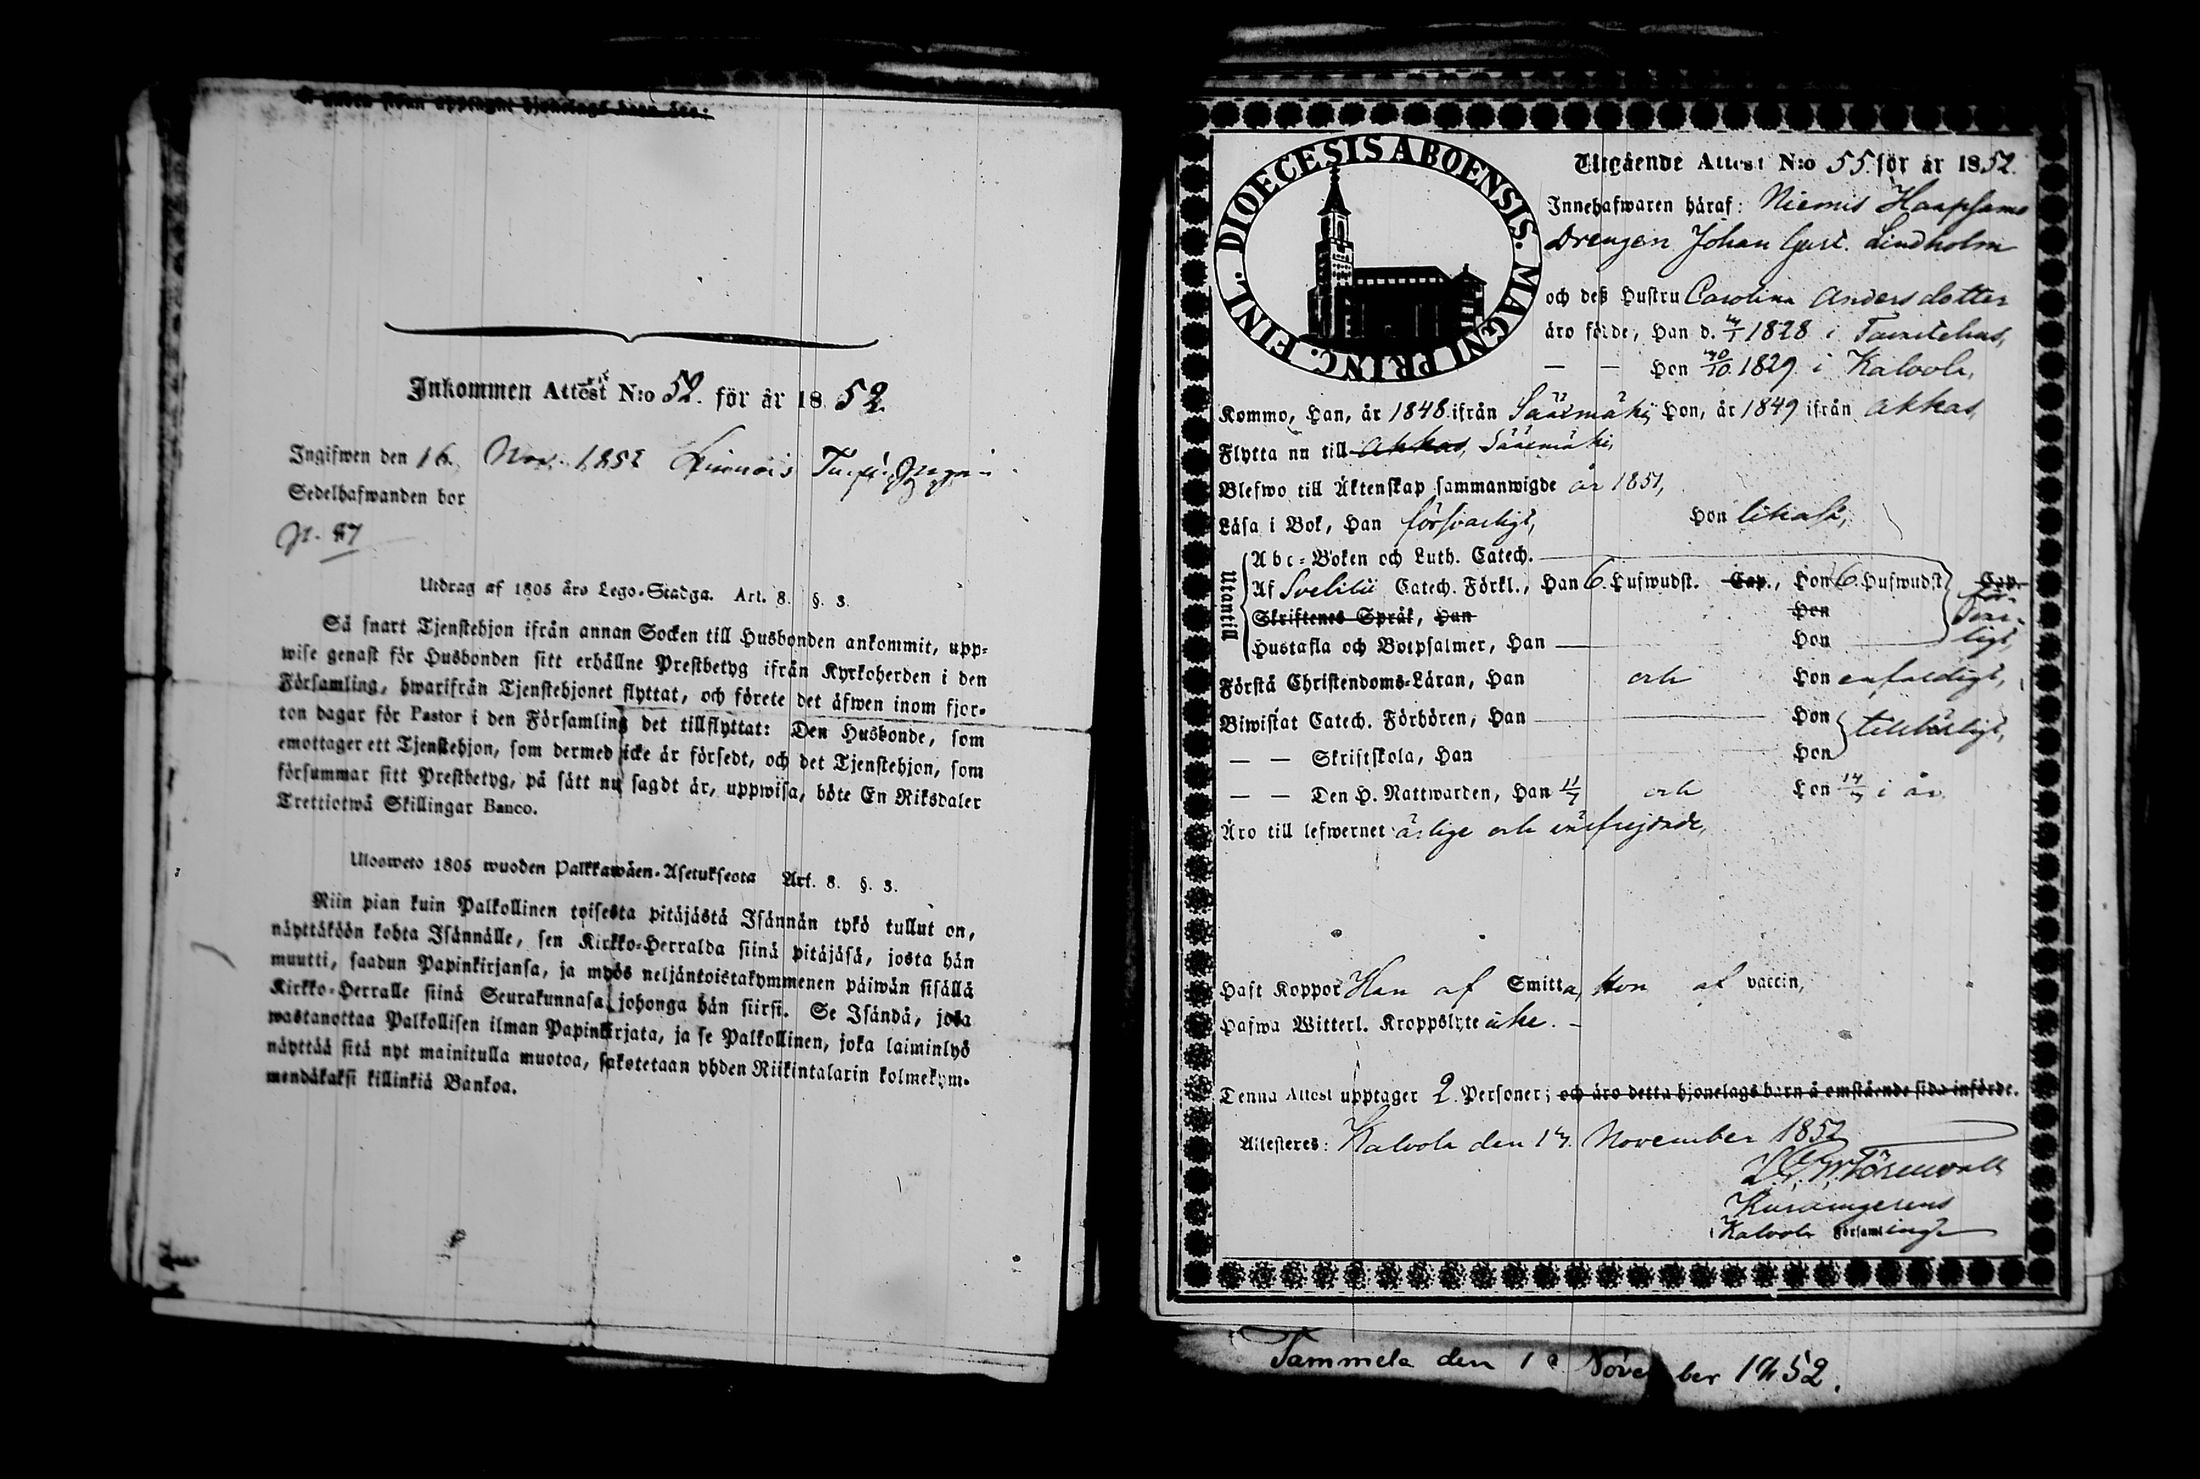 Inkommen Attest N:o 52. för år 1852.
Ingifwen den 16. Nov. 1852
Sedelhafwanden bor
p. 87
Utdrag af 1805 års Lego-Stadga. Art. 8. §. 3.
Så snart Tjenstehjon ifrån annan Socken till Husbonden ankommit, upp-
wise genast för Husbonden sitt erhållne Prestbetyg ifrån Kyrkoherden i den
Församling, hwarifrån Tjenstehjonet flyttat, och förete det äfwen inom fjor-
ton dagar för Pastor i den Församling det tillflyttat: Den Husbonde, som
emottager ett Tjenstehjon, som dermed icke är försedt, och det Tjenstehjon, som
försummar sitt Prestbetyg, på sätt nu sagdt är, uppwisa, böte En Riksdaler
Trettiotwå Skillingar Banco.
Ulosweto 1805 wuoden Palkkawäen-Asetuksesta Art. 8. §. 3.
Niin pian kuin Palkollinen toisesta pitäjästä Isännän tykö tullut on,
näyttäköön kohta Isännälle, sen Kirkko-Herralda siinä pitäjäsä, josta hän
muutti, saadun Papinkirjansa, ja myös neljäntoistakymmenen päiwän sisällä
Kirkko-Herralle siinä Seurakunnasa johonga hän siirsi. Se Isändä, joka
wastanottaa Palkollisen ilman Papinkirjata, ja se Palkollinen, joka laiminlyö
näyttää sitä nyt mainitulla muotoa, sakotetaan yhden Riikintalarin kolmekym-
mendäkaksi killinkiä Bankoa.
DIOECESIS ABOENSIS. MAGNI PRINC. FINL.
Utgående Attest N:o 55. för år 1852.
Innehafwaren häraf: Niemis Haapsamo
Drengen Johan Gust. Lindholm
och deß Hustru Carolina Andersdotter
äro födde, Han d. 1828 i Tavastehus,
— — Hon 1829 i Kalvola,
Komme, Han, år 1848 ifrån Sääxmäki, Hon, år 1849 ifrån Akkas,
Flytta nu till Akkas, Sääxmäki,
Blefwo till Äktenskap sammanwigde år 1851,
Läsa i Bok, Han försvarligt, Hon likaså,
Utantill
Abc-Boken och Luth. Catech.
Af Svebilii Catech. Förkl., Han 6. Hufwudst. Cap., Hon 6. Hufwudst. Cap.
Skriftenes Språk, Han Hon
Hustafla och Botpsalmer, Han Hon
för-
svar-
ligt,
Förstå Christendoms-Läran, Han och Hon enfaldigt,
Biwistat Catech. Förhören, Han Hon tillbörligt,
— — Skriftskola, Han Hon
— — Den H. Nattwarden, Han och Hon i år
Äro till lefwernet ärlige och välfrejdade,
Haft Koppor Han af Smitta, Hon af vaccin,
Hafwa Witterl. Kroppslyte icke. –
Denna Attest upptager 2 Personer; och äro detta hjonelags barn å omstående sida införde.
Attesteras: Kalvola den 14. November 1852
i Kalvola Församling
Tammela den November 1852.